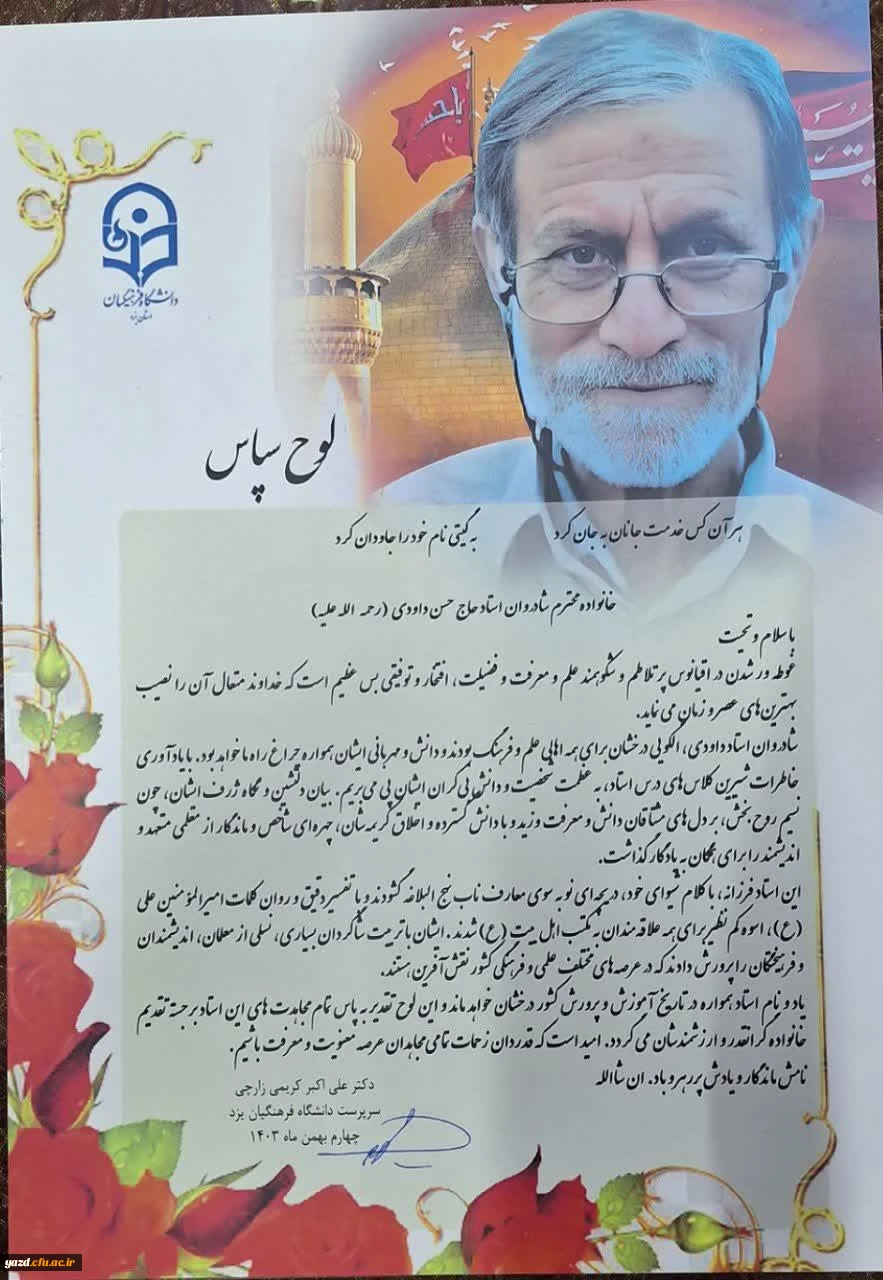 یا حسین
دانشگاه فرهنگیان
استان یزد
لوح سپاس
هر آن کس خدمت جانان به جان کرد به گیتی نام خود را جاودان کرد
خانواده محترم شادروان استاد حاج حسن داودی (رحمه الله علیه)
با سلام و تحیت
غوطه ور شدن در اقیانوس پر تلاطم و شکوهمند علم و معرفت و فضیلت، افتخار و توفیقی بس عظیم است که خداوند متعال آن را نصیب
بهترین‌های عصر و زمان می نماید.
شادروان استاد داودی، الگویی درخشان برای همه اهالی علم و فرهنگ بودند و دانش و مهربانی ایشان همواره چراغ راه ما خواهد بود. با یادآوری
خاطرات شیرین کلاس‌های درس استاد، به عظمت شخصیت و دانش بی کران ایشان پی می‌بریم. بیان دلنشین و نگاه ژرف ایشان، چون
نسیم روح بخش، بر دل‌های مشتاقان دانش و معرفت وزید و با دانش گسترده و اخلاق کریمه‌شان، چهره‌ای شاخص و ماندگار از معلمی متعهد و
اندیشمند را برای همگان به یادگار گذاشت.
این استاد فرزانه، با کلام شیوای خود، دریچه‌ای نو به سوی معارف ناب نهج البلاغه گشودند و با تفسیر دقیق و روان کلمات امیرالمؤمنین علی
(ع)، اسوه کم نظیر برای همه علاقه مندان به مکتب اهل بیت (ع) شدند. ایشان با تربیت شاگردان بسیاری، نسلی از معلمان، اندیشمندان
و فرهیختگان را پرورش دادند که در عرصه‌های مختلف علمی و فرهنگی کشور نقش آفرین هستند.
یاد و نام استاد همواره در تاریخ آموزش و پرورش کشور درخشان خواهد ماند و این لوح تقدیر به پاس تمام مجاهدت های این استاد برجسته تقدیم
خانواده گرانقدر و ارزشمندشان می گردد. امید است که قدردان زحمات تمامی مجاهدان عرصه معنویت و معرفت باشیم.
نامش ماندگار و یادش پررهرو باد. ان شاالله
دکتر علی اکبر کریمی زارچی
سرپرست دانشگاه فرهنگیان یزد
چهارم بهمن ماه ۱۴۰۳
yazd.cfu.ac.ir